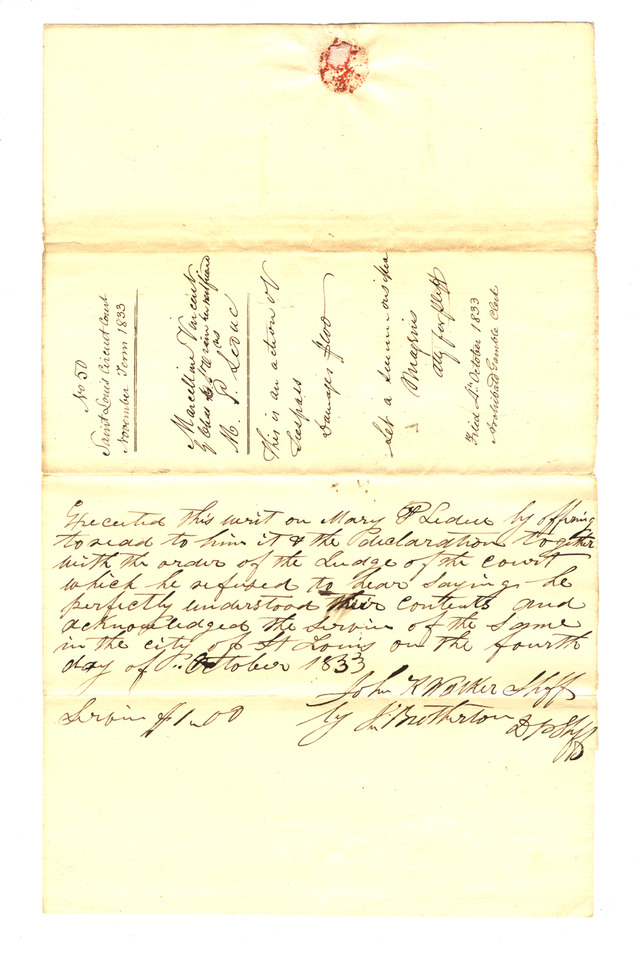 No 50
Saint Louis Circuit Court
November Term 1833
Marcelline Vincent
&
Chas
vs
M. P. Leduc
This is an action of
Trespass
Damages $200
Let a summons issue
Magenis
atty for plff
Filed 4th October 1833
Archibald Gamble Clerk
Executed this writ on Mary P Leduc by offering
to read to him it & the declaration together
with the order of the Judge of the court
which he refused to hear saying he
perfectly understood their contents and
acknowledged the service of the same
in the city of St Louis on the fourth
day of October 1833
John K Walker Shff
Service $1.00
by Js Brotherton D Shff